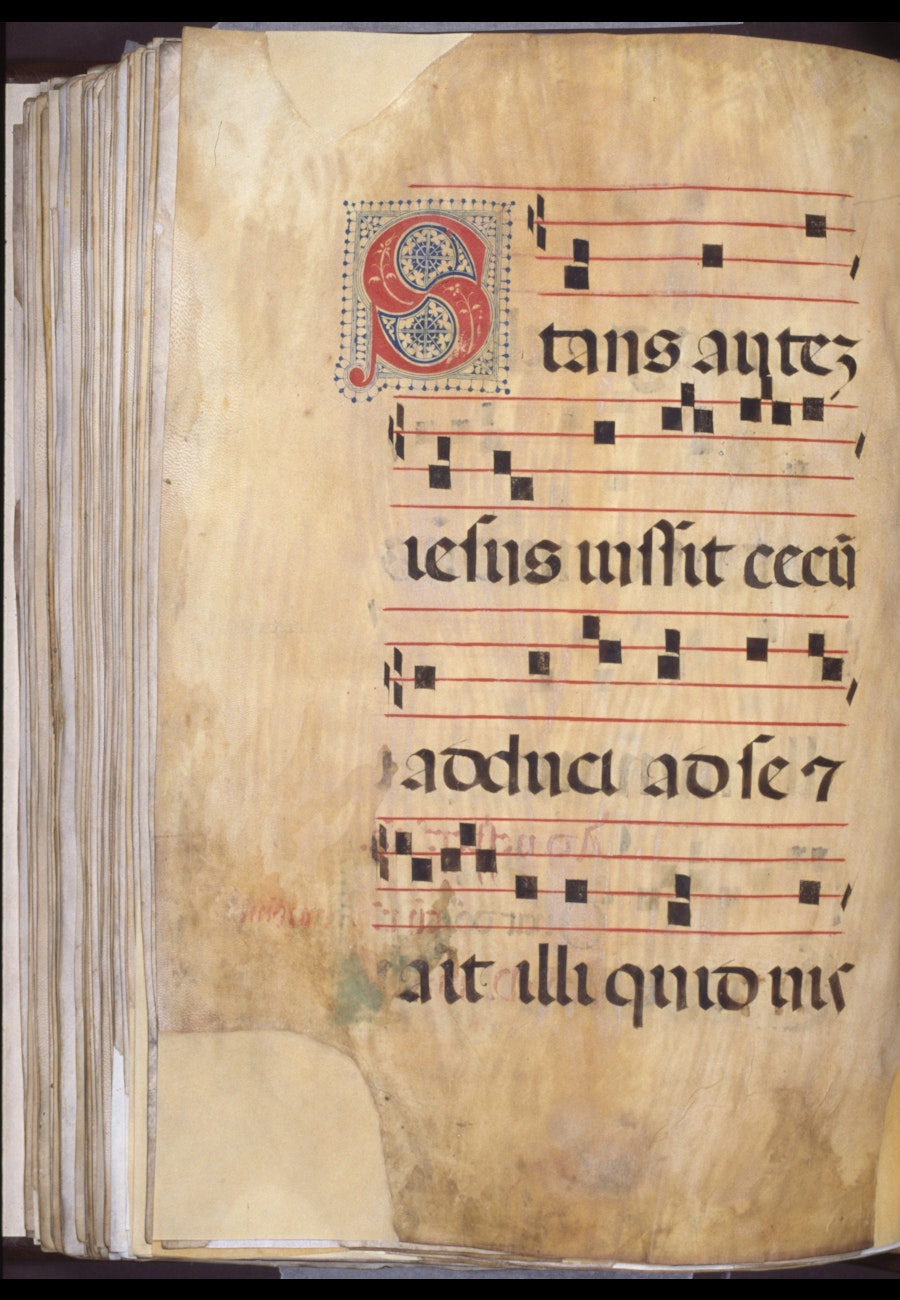 Stans autez
iesus iussit cecū
adduci ad se 7
ait illi quid uis